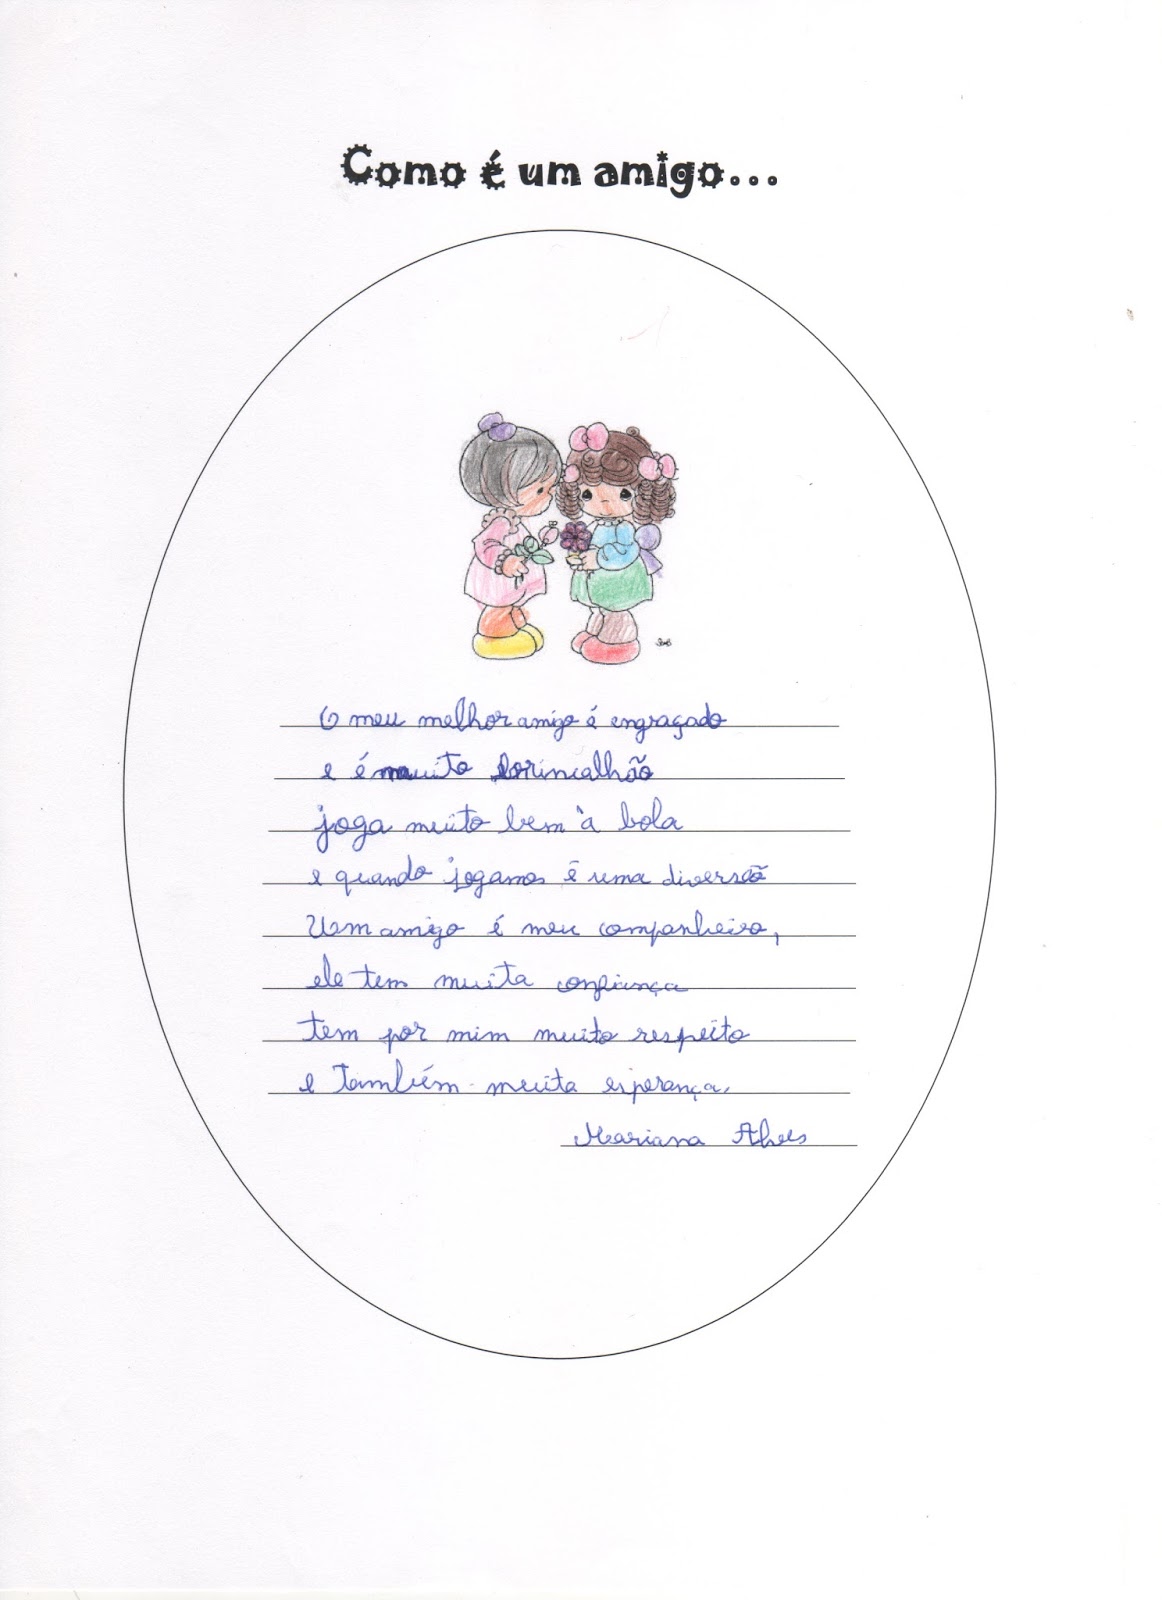 Como é um amigo...
O meu melhor amigo é engraçado
e é muito brincalhão
joga muito bem à bola
e quando jogamos é uma diversão
Um amigo é meu companheiro,
ele tem muita confiança
tem por mim muito respeito
e também muita esperança.
Mariana Alves